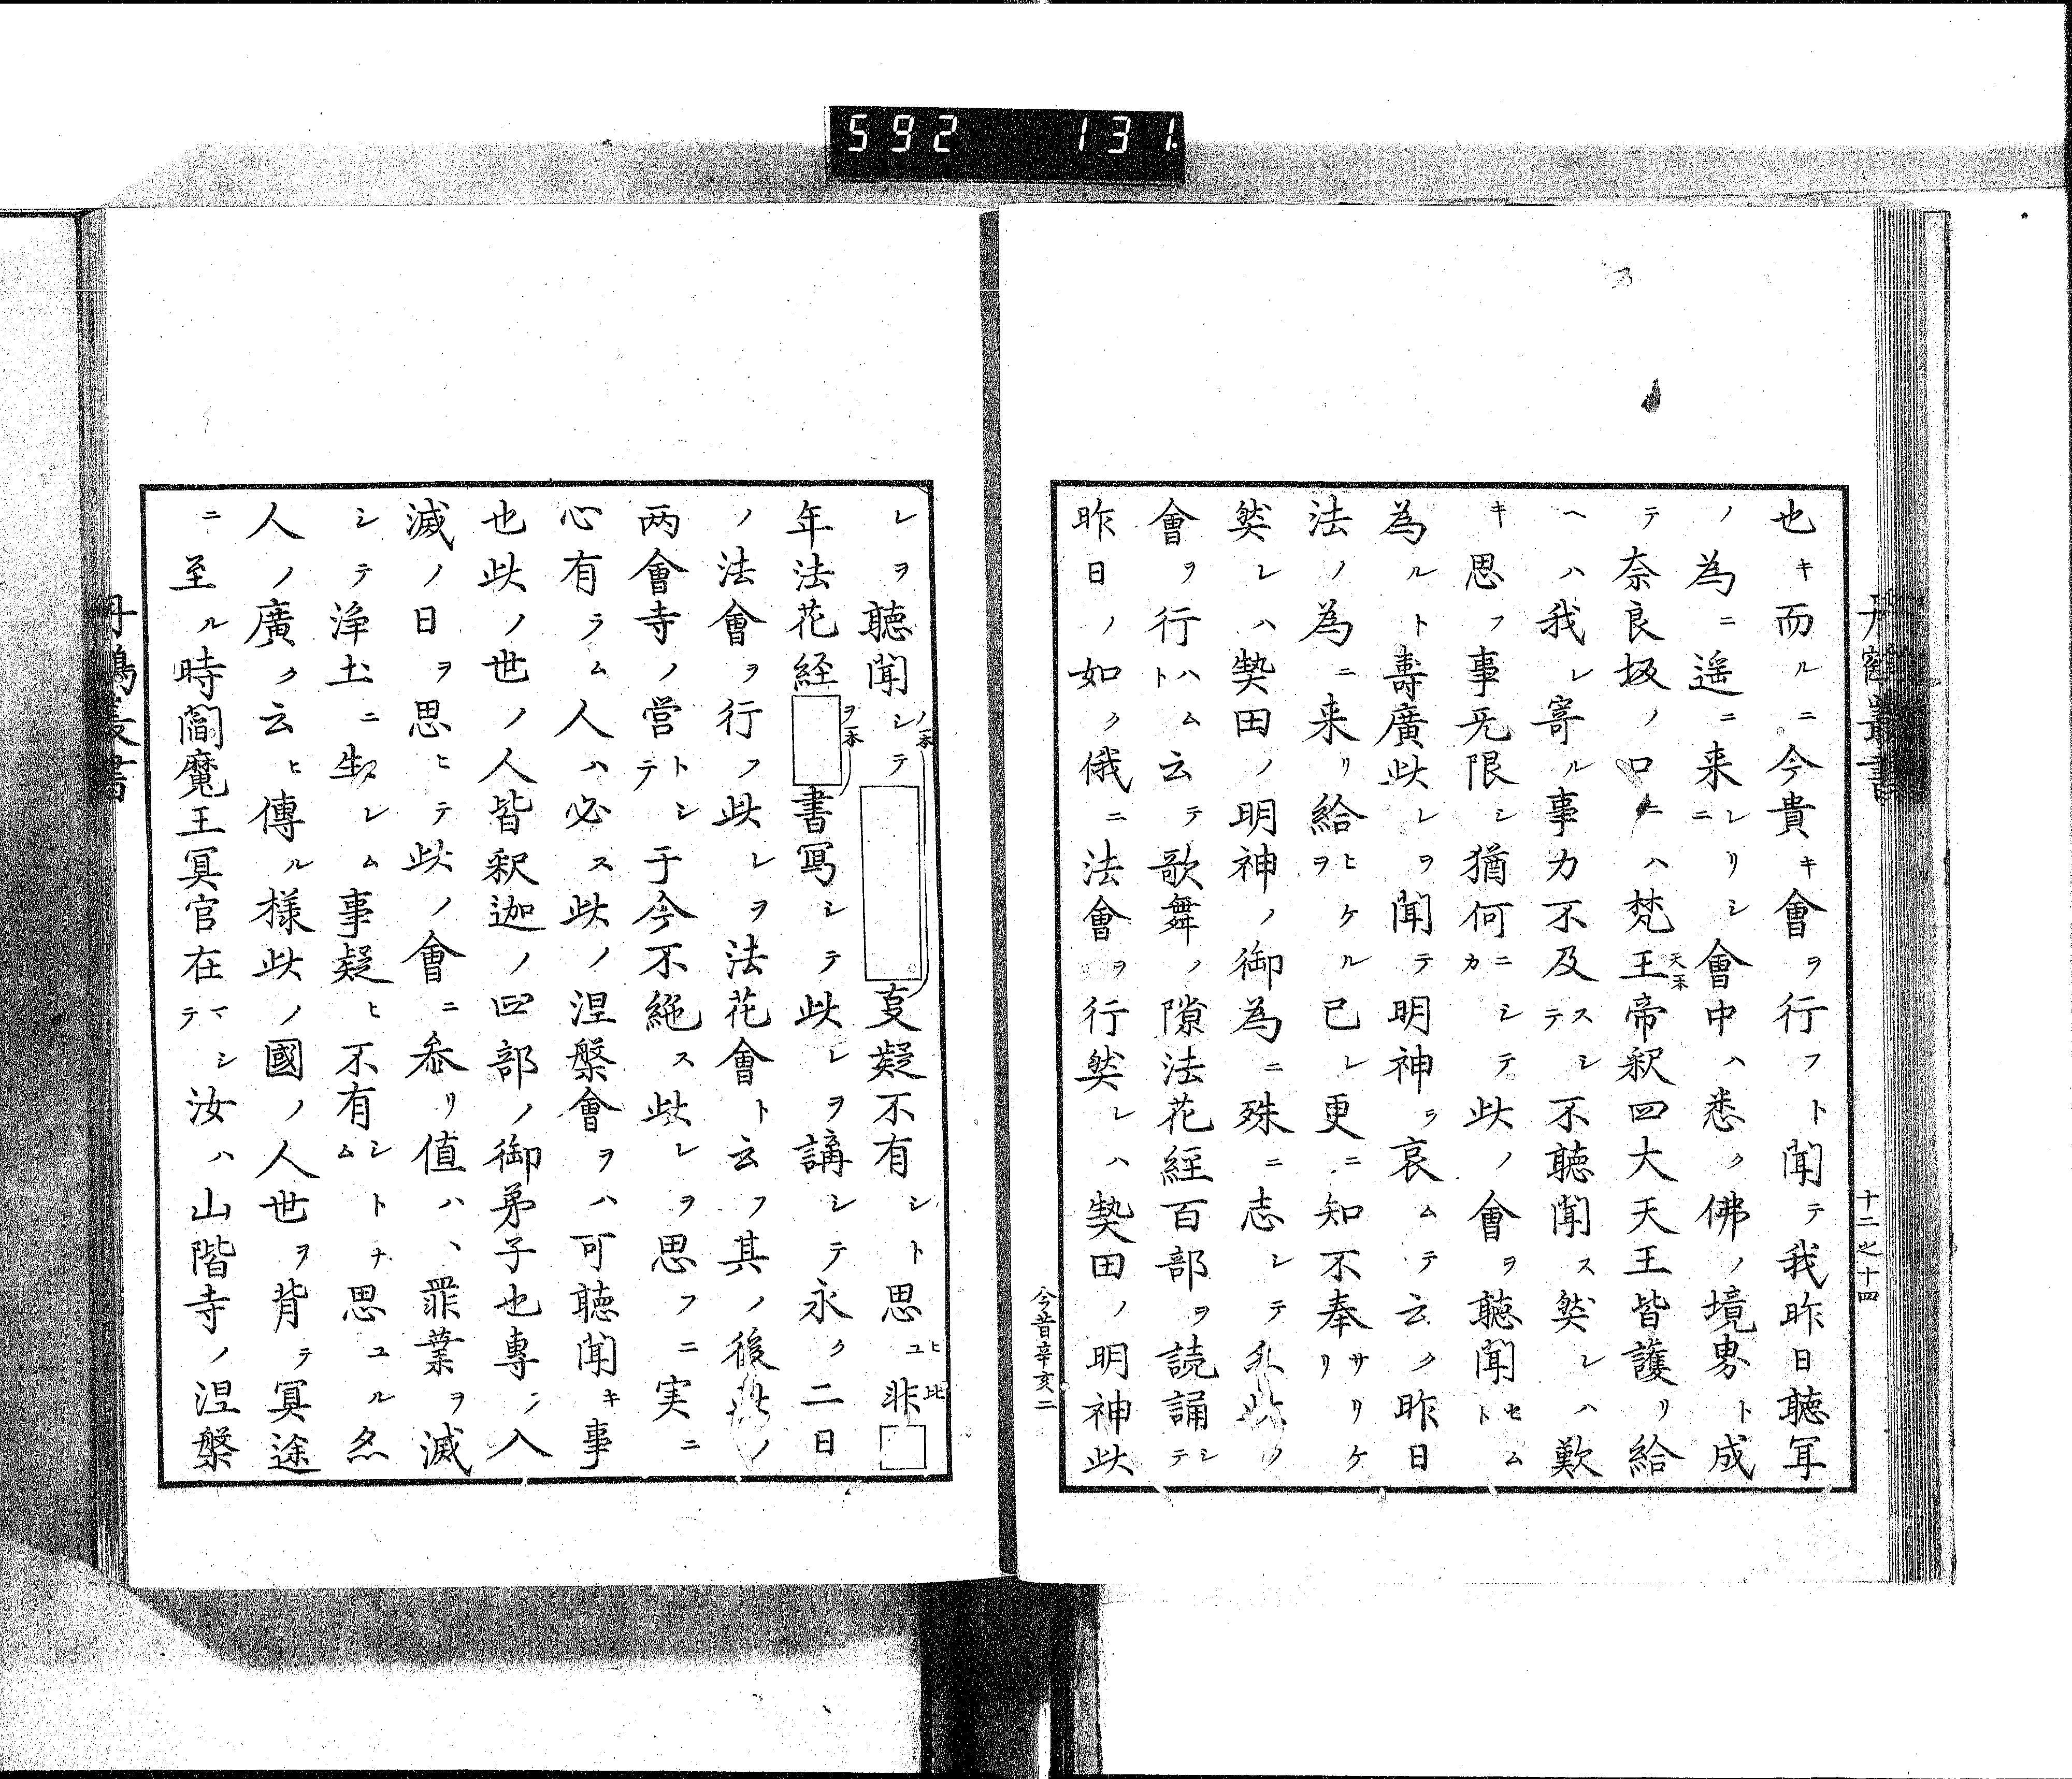 592 131
丹鶴叢書
十二之十四
也キ而ルニ今貴キ會ヲ行フト聞テ我昨日聴耳
ノ為ニ遥ニ来レリシニ會中ハ悉ク佛ノ境界ト成
テ奈良坂ノ口ニハ梵王天本帝釈四大天王皆護リ給
ヘハ我レ寄ル事カ不及スシテ不聴聞ス𤉷レハ歎
キ思フ事无限シ猶何ニカシテ此ノ會ヲ聴聞セムト
為ルト壽廣此レヲ聞テ明神ヲ哀ムテ云ク昨日
法ノ為ニ来リ給ヒケルヲ己レ更ニ知不奉サリケリ
𤉷レハ𤍠田ノ明神ノ御為ニ殊ニ志シテ此ノ
會ヲ行ハムト云テ歌舞ノ隙法花經百部ヲ読誦シテ
昨日ノ如ク俄ニ法會ヲ行𤉷レハ𤍠田ノ明神此
今昔辛亥二
レヲ聴聞シテノ一本□㪅疑不有シト思ヒユ非此□
年法花経ヲ一本□書冩シテ此レヲ講シテ永ク二日
ノ法會ヲ行フ此レヲ法花會ト云フ其ノ後此ノ
两會寺ノ営トシテ于今不絶ス此レヲ思フニ実ニ
心有ラム人ハ必ス此ノ涅槃會ヲハ可聴聞キ事
也此ノ世ノ人皆釈迦ノ四部ノ御弟子也專ニ入
滅ノ日ヲ思ヒテ此ノ會ニ参リ値ハヽ罪業ヲ滅
シテ浄土ニ生レム事疑ヒ不有シムトナ思ユル
人ノ廣ク云ヒ傳ル様此ノ國ノ人世ヲ背テ冥途
ニ至ル時閻魔王冥官在マシテ汝ハ山階寺ノ涅槃
丹鶴叢書